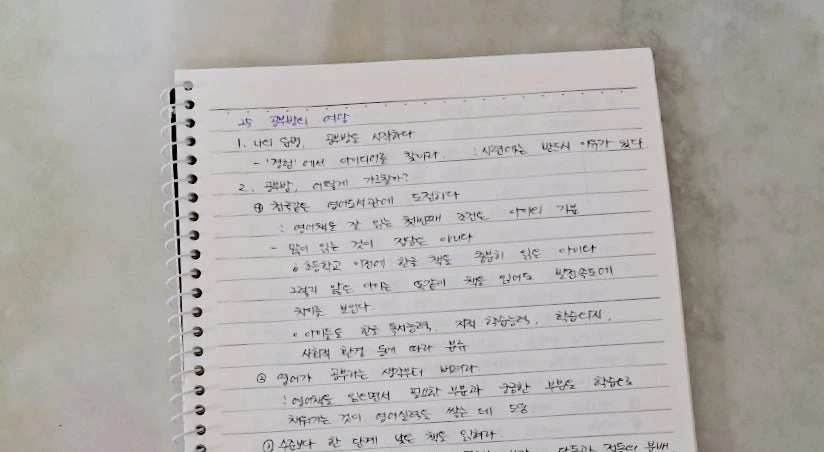 25 공부방의 여왕
1. 나의 운명, 공부방을 시작하다
- '경험'에서 아이디어를 찾아라. : 시련에는 반드시 이유가 있다.
2. 공부방, 어떻게 가르칠까?
① 천국같은 영어도서관에 도전하다
: 영어책을 잘 읽는 첫번째 조건은 아이의 기분
- 많이 읽는 것이 정답은 아니다
○ 초등학교 이전에 한글 책을 충분히 읽은 아이와
그렇지 않은 아이는 똑같이 책을 읽어도 발전속도에
차이를 보인다.
○ 아이들은 한글 독서능력, 지적 학습능력, 학습의지,
사회적 환경 등에 따라 분류
② 영어가 공부라는 생각부터 버려라.
: 영어책을 읽으면서 필요한 부분과 궁금한 부분을 학습으로
채워가는 것이 영어실력을 쌓는 데 도움.
수준보다 한 단계 낮은 책을 읽혀라.